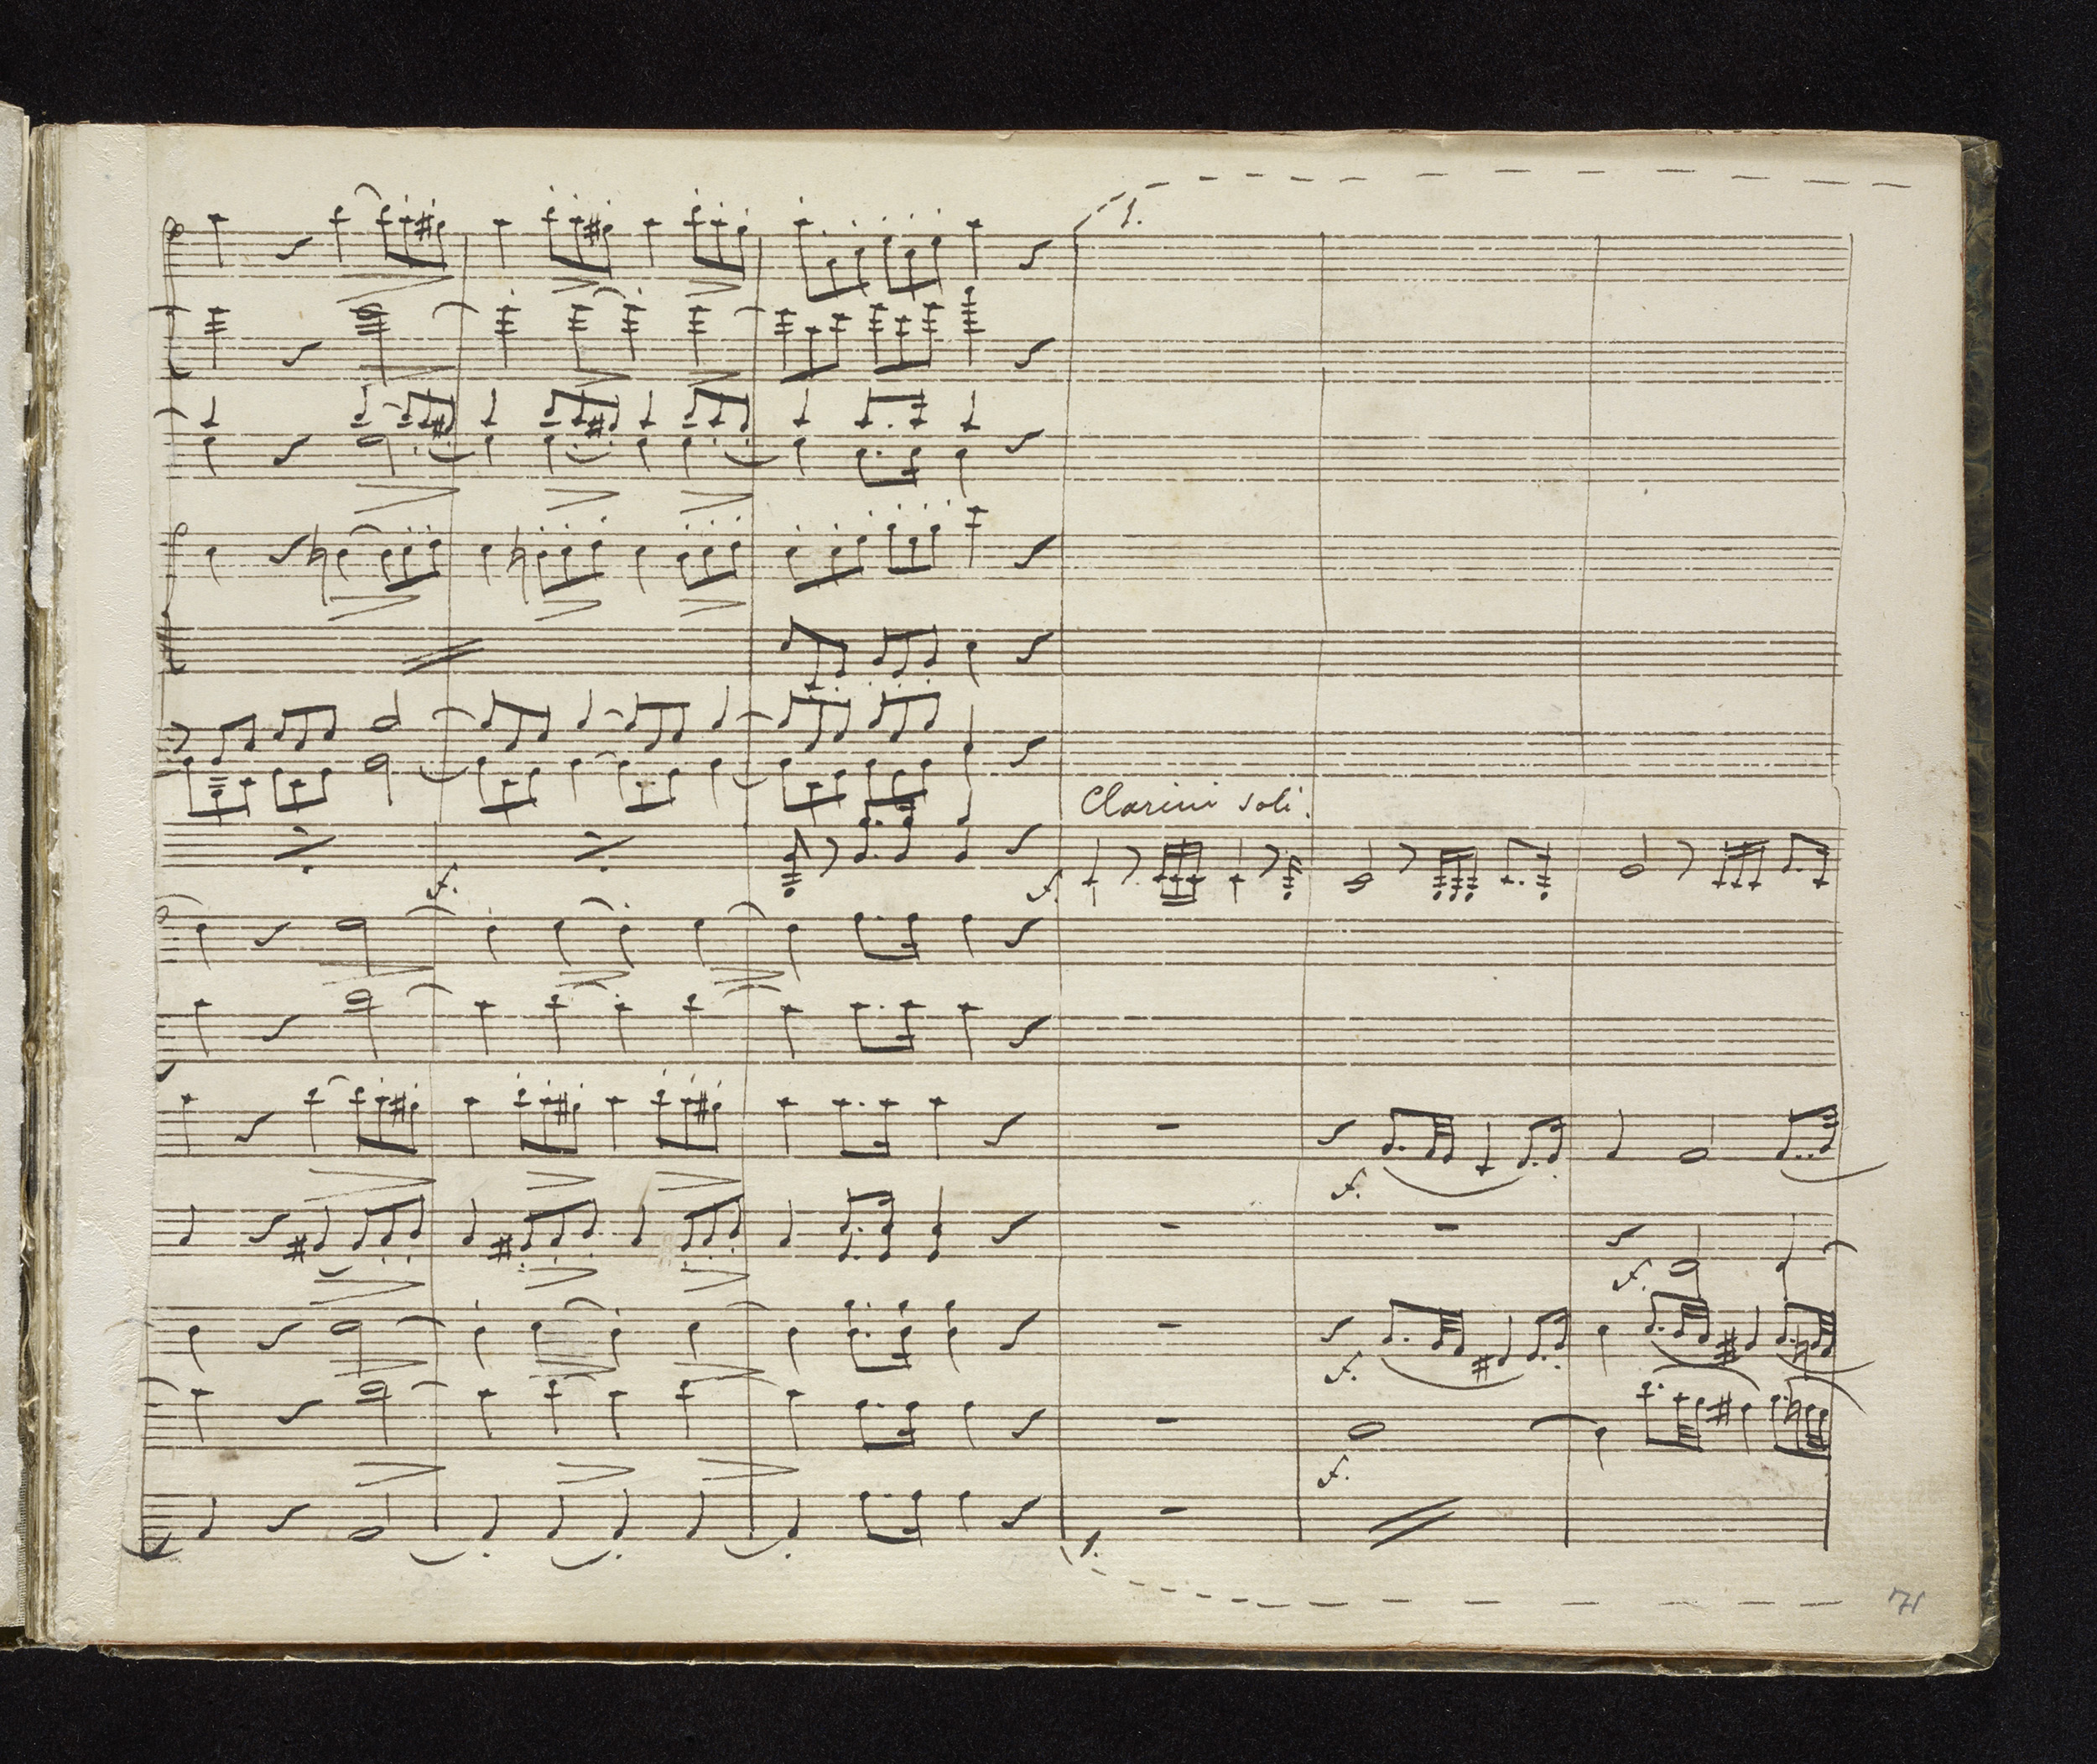 1.
Clarini soli.
f.
f.
f.
f.
f.
f.
1.
71